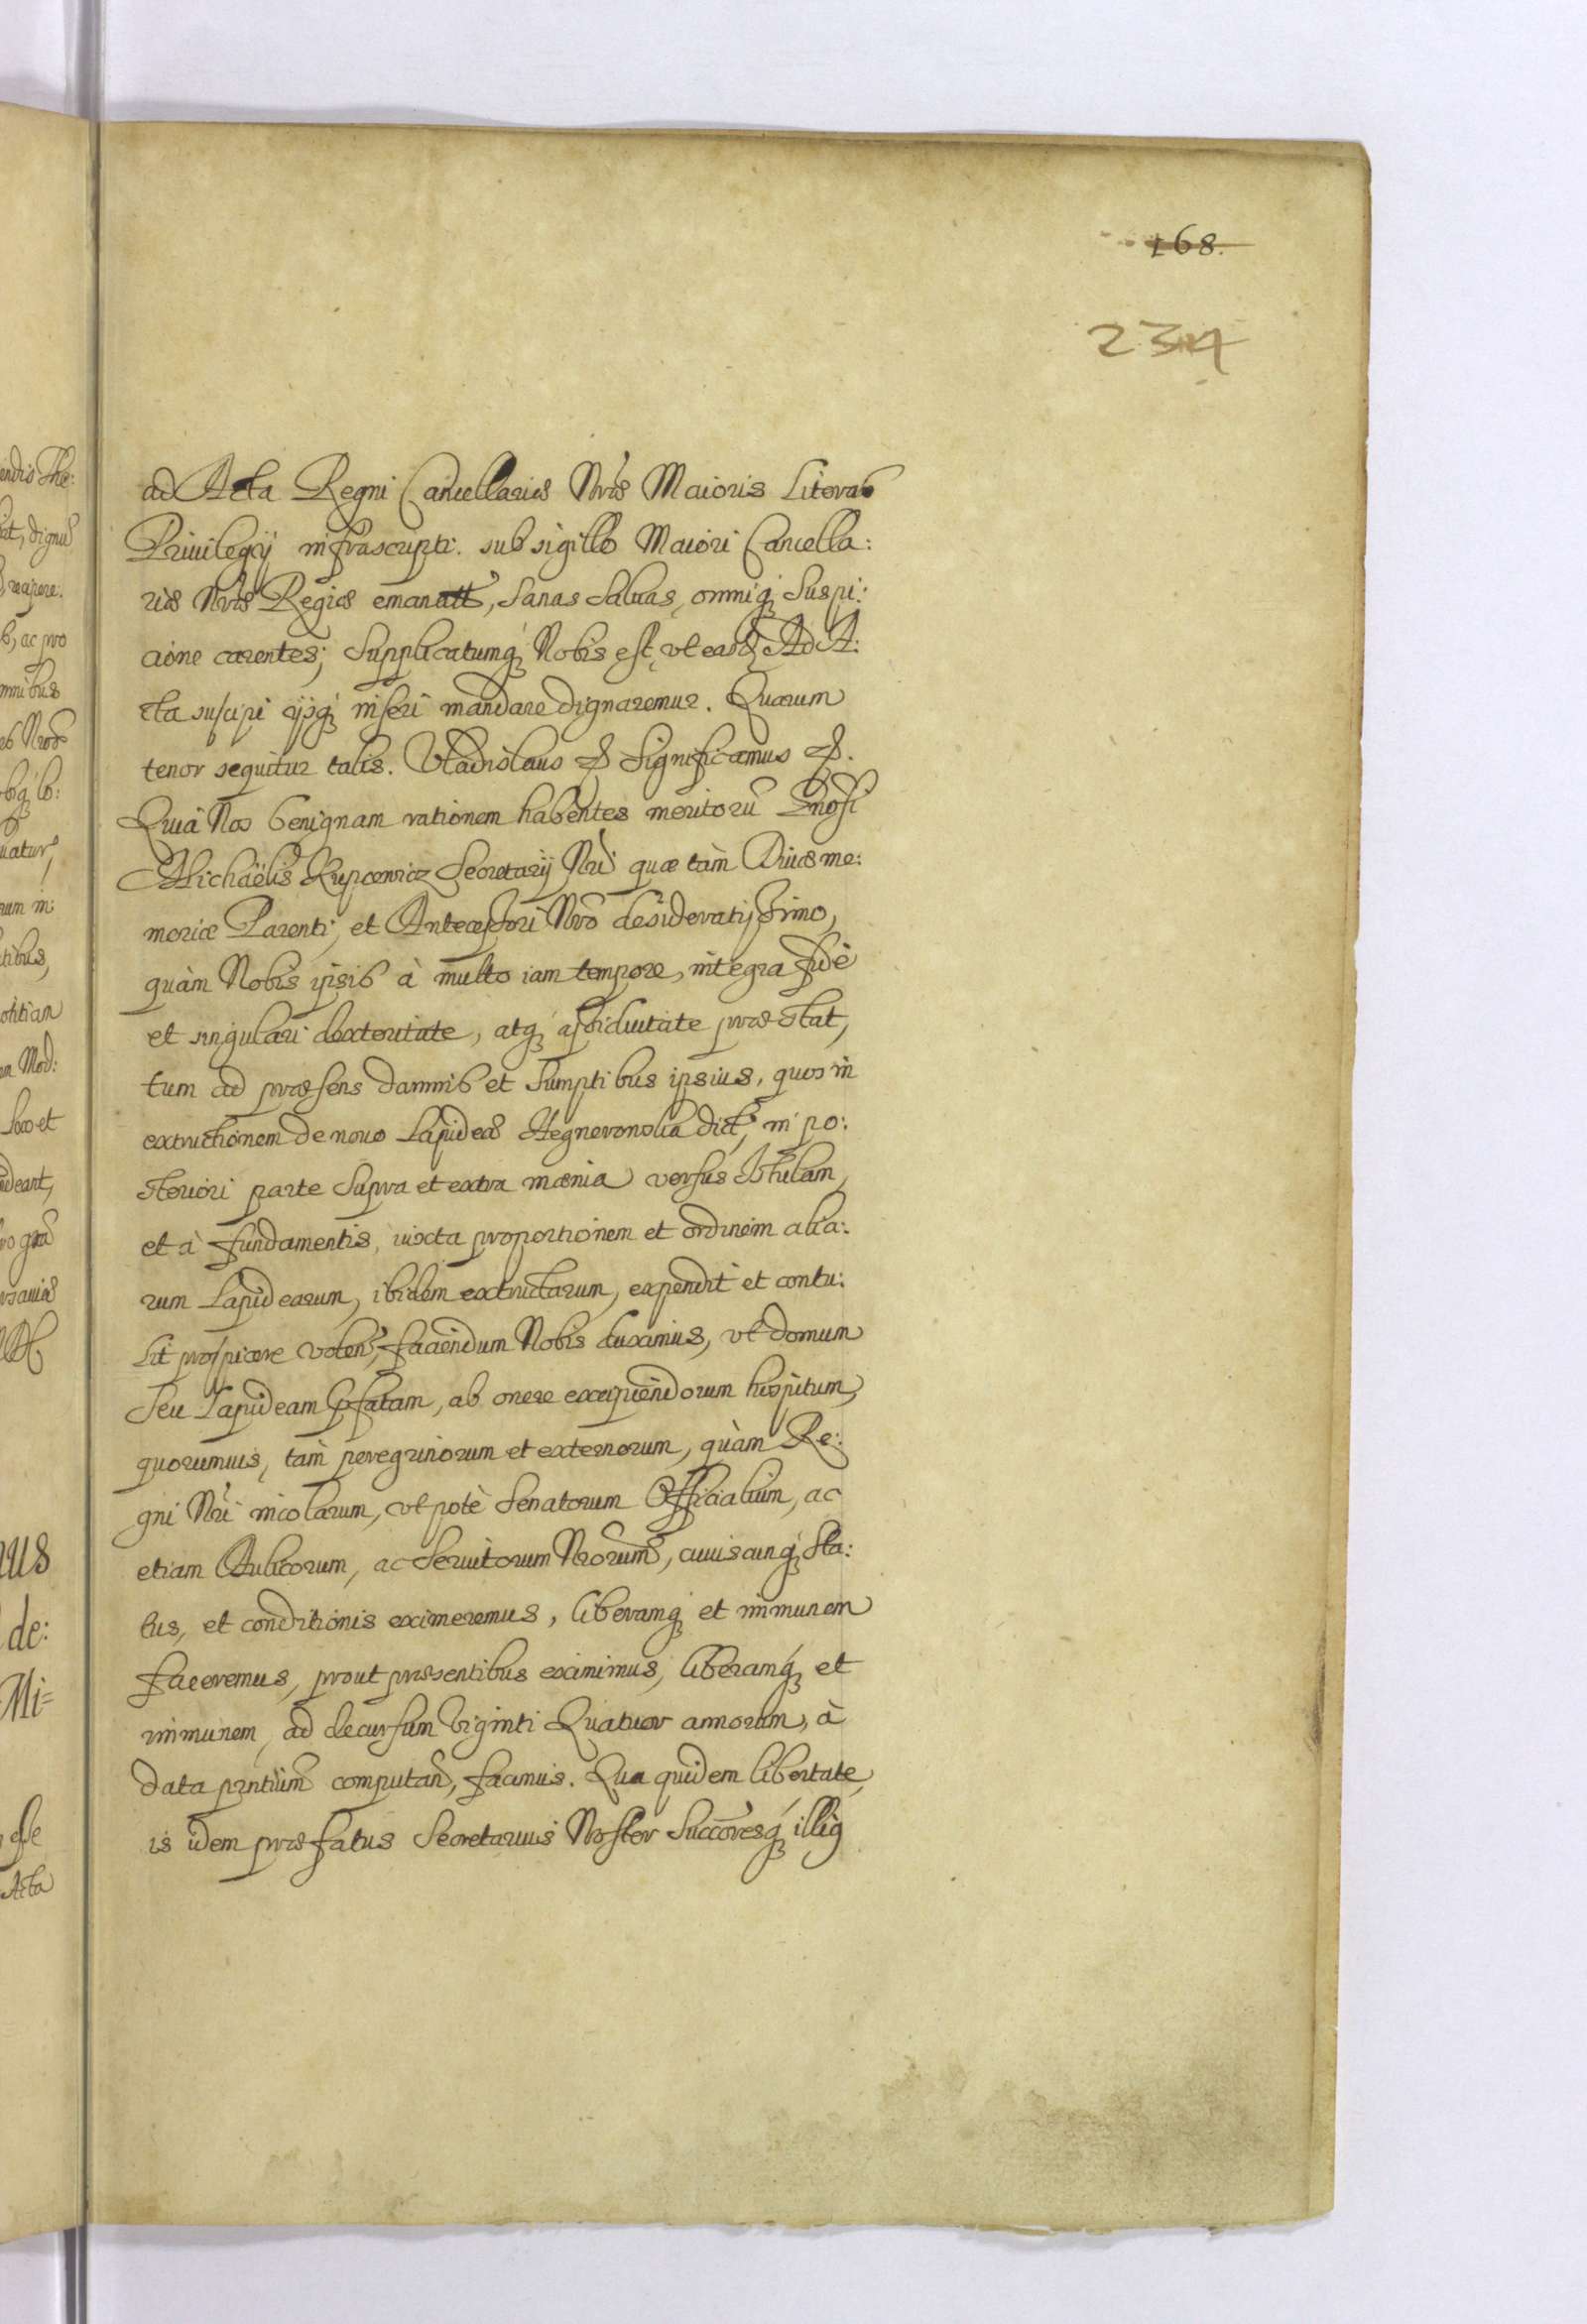 168.
234
ad Acta Regni Cancellariæ Nræ Maioris Literas
Priuilegij infrascripti sub sigillo Maiori Cancella:
riæ Nræ Regiæ emanatt, sanas saluas, omniq; suspi:
cione carentes; supplicatumq; Nobis est, vt easd; Ad A:
cta suscipi ijsq; inseri mandare dignaremur. Quarum
tenor sequitur talis. Vladislaus &. Significamus &.
Quia Nos benignam rationem habentes meritorū Gnosi
Michaëlis Kupcewicz Secretarij Nri quæ tàm Diuæ me:
moriæ Parenti, et Antecessori Nro desideratissimo,
quàm Nobis ipsis à multo iam tempore, integra fidè
et singulari dexteritate, atq; assiduitate præstat,
tum ad præsens damnis et sumptibus ipsius, quos in
extructionem de nouo Lapideæ dict, in po:
steriori parte supra et extra mænia versus Istulam,
et à fundamentis, iuxta proportionem et ordinem alia:
rum Lapidearum, ibidem extructarum, expendit et contu:
lit prospicere volen, faciendum Nobis duximus, vt domum
seu Lapideam pfatam, ab onere excipiendorum hospitum,
quorumuis, tàm peregrinorum et externorum, quàm Re:
gni Nri incolarum, vt potè Senatorum Officialium, ac
etiam Aulicorum, ac Seruitorum Nrorum, cuiuscunq; sta:
tus, et conditionis eximeremus, liberamq; et immunem
faceremus, prout præsentibus eximimus, liberamq; et
immunem, ad decursum Viginti Quatuor annorum, à
data prntium computan, facimus. Qua quidem libertate,
is idem præfatus Secretarius Noster Succoresq; illig